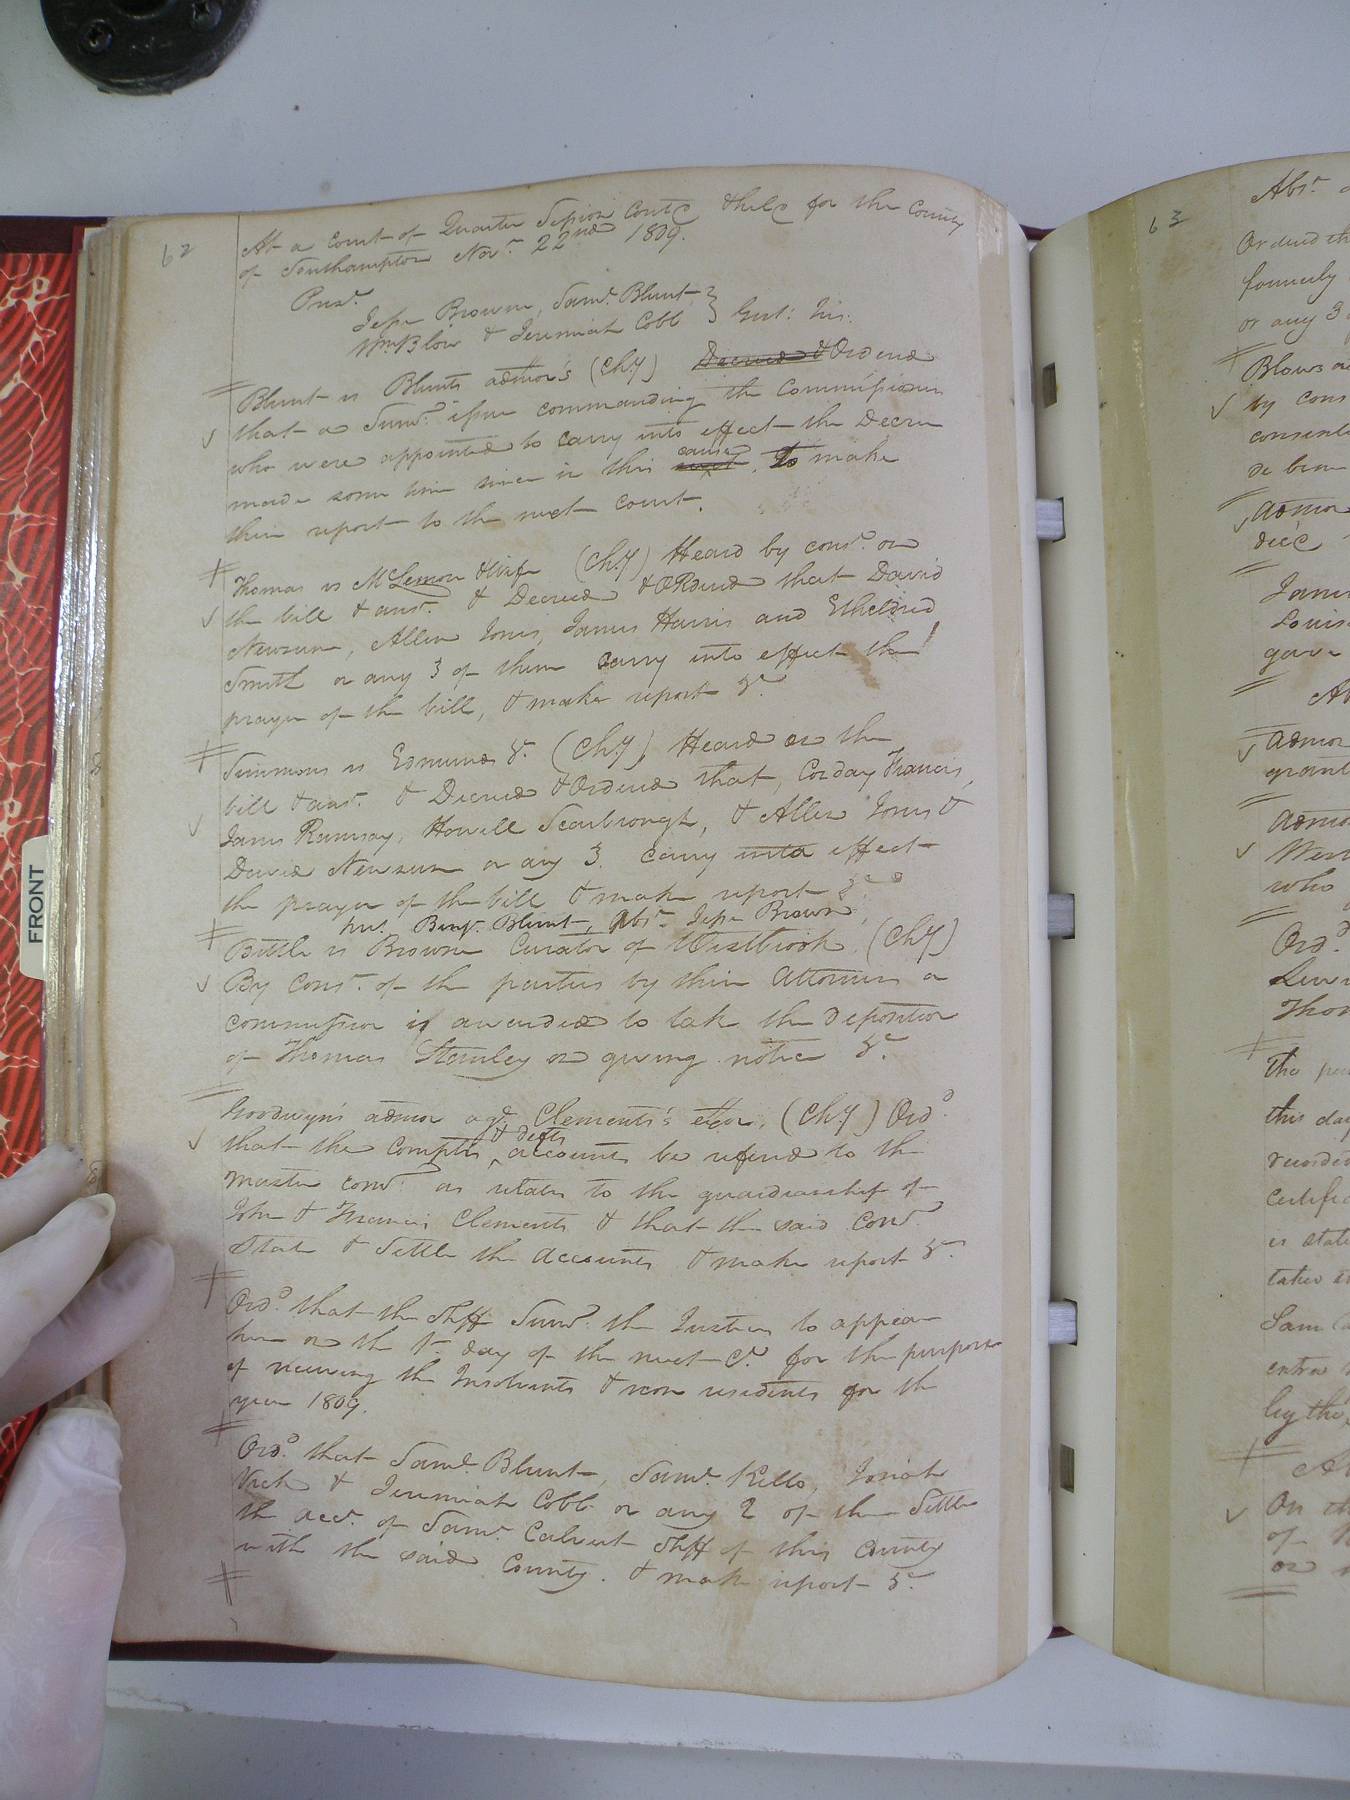 62
At a Court of Quarter Session Contd & held for the County
of Southampton Nov.r 22nd 1809.
Pres.t
Jesse Browne, Sam.l Blunt }
Wm Blow & Jeremiah Cobb } Gent: Jus:
Blunt vs Blunts admor's (Ch.y) Decreed & Ordered
that a Sum.s issue commanding the Commissioners
who were appointed to carry into effect the Decree
made some time since in this cause To make
their report to the next court.
Thomas vs McLemore & Wife (Ch.y) Heard by cons.t on
the bill & ans.r & Decreed & ORdered that David
Newsum, Allen Jones, James Harris and Etheldred
Smith or any 3 of them carry into effect the
prayer of the bill, & make report &c
Simmons vs Edmunds &c. (Ch.y) Heard on the
bill & ans.r & Decreed & Ordered that, Corday Francis,
James Ramsay, Howell Scarbrough, & Allen Jones &
David Newsum or any 3. carry into effect
the prayer of the bill & make report &c
Pres. Benj.n Blunt, Abs.t Jesse Browne,
Bittle vs Browne Curator of Westbrook (Ch.y)
By Cons.t of the parties by their Attornies a
commission is awarded to take the deposition
of Thomas Stanley on giving notice &c.
Goodwyn's admor ag.t Clements's exor, (Ch.y) Ord.d
that the Complts & defts accounts be refered to the
master com.r as relates to the guardianship of
John & Francis Clements & that the said Com.r
State & Settle the accounts & make report &c.
Ord.d that the Shff Sum.s the Justices to appear
here on the 1st. day of the next Ct. for the purpose
of receiving the Insolvents & non residents for the
year 1809.
Ord.d that Sam.l Blunt, Sam.l Kello, Josiah
Vick & Jeremiah Cobb or any 2 of them Settle
the acc.t of Sam.l Calvert Shff of this County
with the said County. & make report &c.
63
Abs.t
Ordered th
formerly
or any 3
Blows a
by cons
consent
de bene
admor
dec'd
Jam
Louis
gave
Ab
admor
grant
admor
West
who
Ord.d
Thom
the per
this day
recorded
Certific
is state
taken
Sam
enter
by the
At
On th
of
or
FRONT